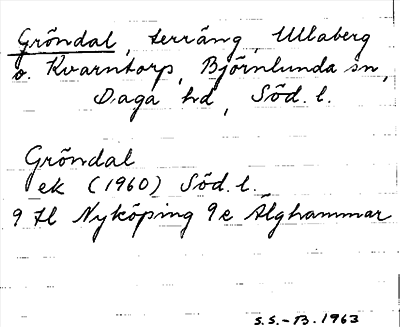 Gröndal, terräng, Ullaberg
o. Kvarntorp, Björnlunda sn,
Daga hd, Söd. l.
Gröndal
ek (1960) Söd. l.
9 H Nyköping 9e Älghammar
S.S.-B. 1963